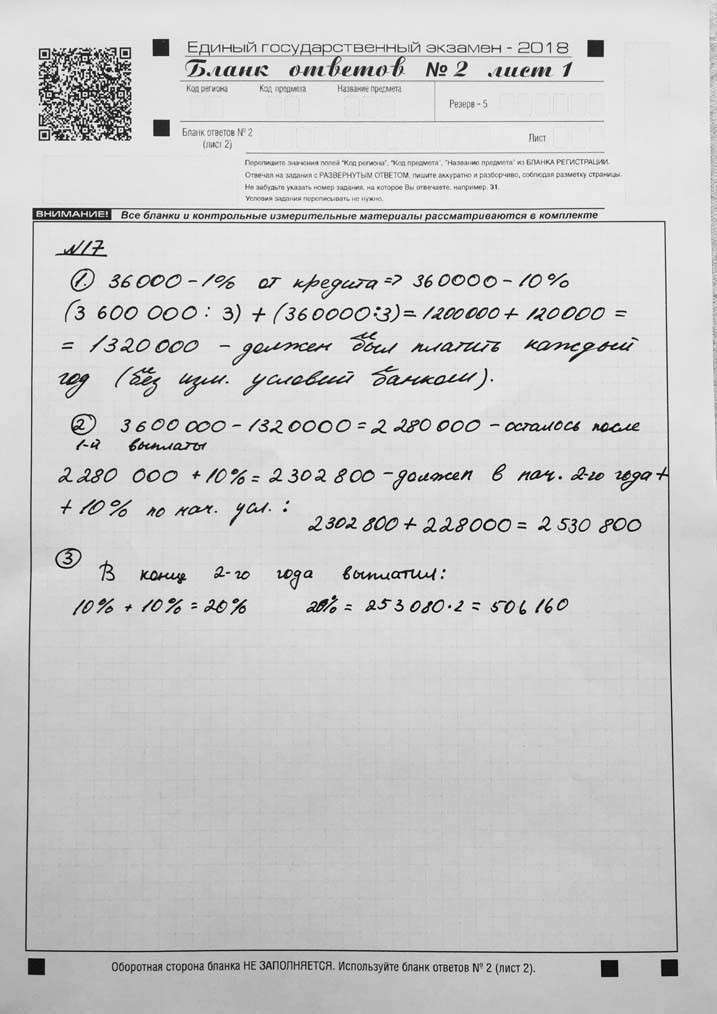 Единый государственный экзамен - 2018
Бланк ответов № 2 лист 1
Код региона Код предмета Название предмета
Резерв - 5
Бланк ответов № 2
(лист 2)
Лист
Перепишите значения полей "Код региона", "Код предмета", "Название предмета" из БЛАНКА РЕГИСТРАЦИИ.
Отвечая на задания с РАЗВЕРНУТЫМ ОТВЕТОМ, пишите аккуратно и разборчиво, соблюдая разметку страницы.
Не забудьте указать номер задания, на которое Вы отвечаете, например, 31.
Условия задания переписывать не нужно.
ВНИМАНИЕ! Все бланки и контрольные измерительные материалы рассматриваются в комплекте
№17
1. 36000 - 1% от кредита => 360000 - 10%
(3 600 000 : 3) + (360000 : 3) = 1200000 + 120000 =
= 1320000 - должен был платить каждый
год (без изм. условий банком).
2 3600 000 - 1320000 = 2 280 000 - осталось после
1-й выплаты
2 280 000 + 10% = 2302 800 - должен в нач. 2-го года +
+ 10% по нач. усл. :
2302 800 + 228000 = 2 530 800
3 В конце 2-го года выплатил:
10% + 10% = 20% 20% = 253 080 · 2 = 506 160
Оборотная сторона бланка НЕ ЗАПОЛНЯЕТСЯ. Используйте бланк ответов № 2 (лист 2).